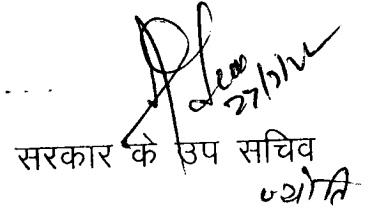 ....
27/7/22
सरकार के उप सचिव
ज्योति